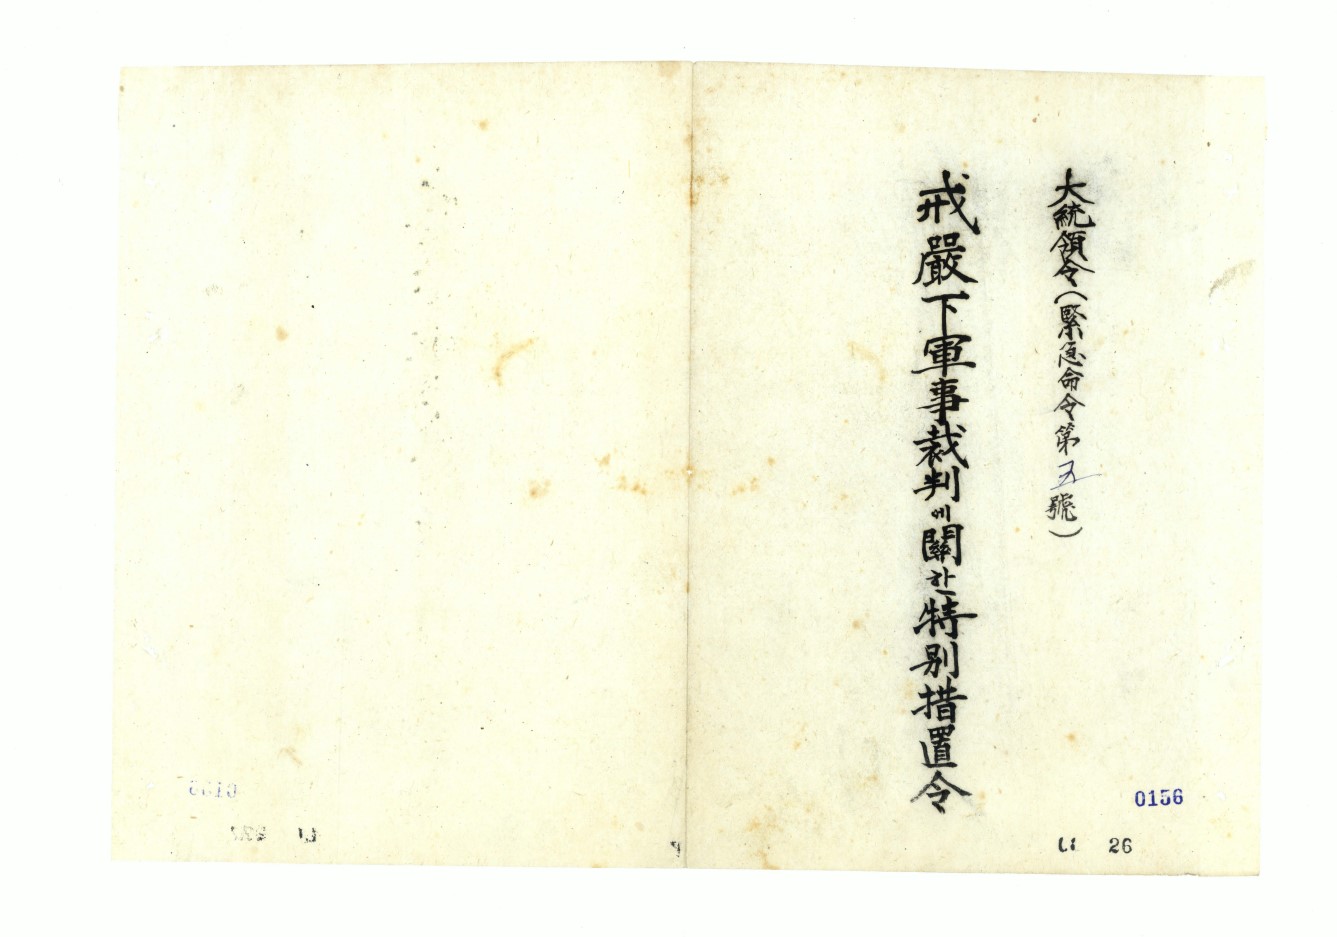 大統領令(緊急命令第五號)
戒嚴下軍事裁判에關한特別措置令
0156
26